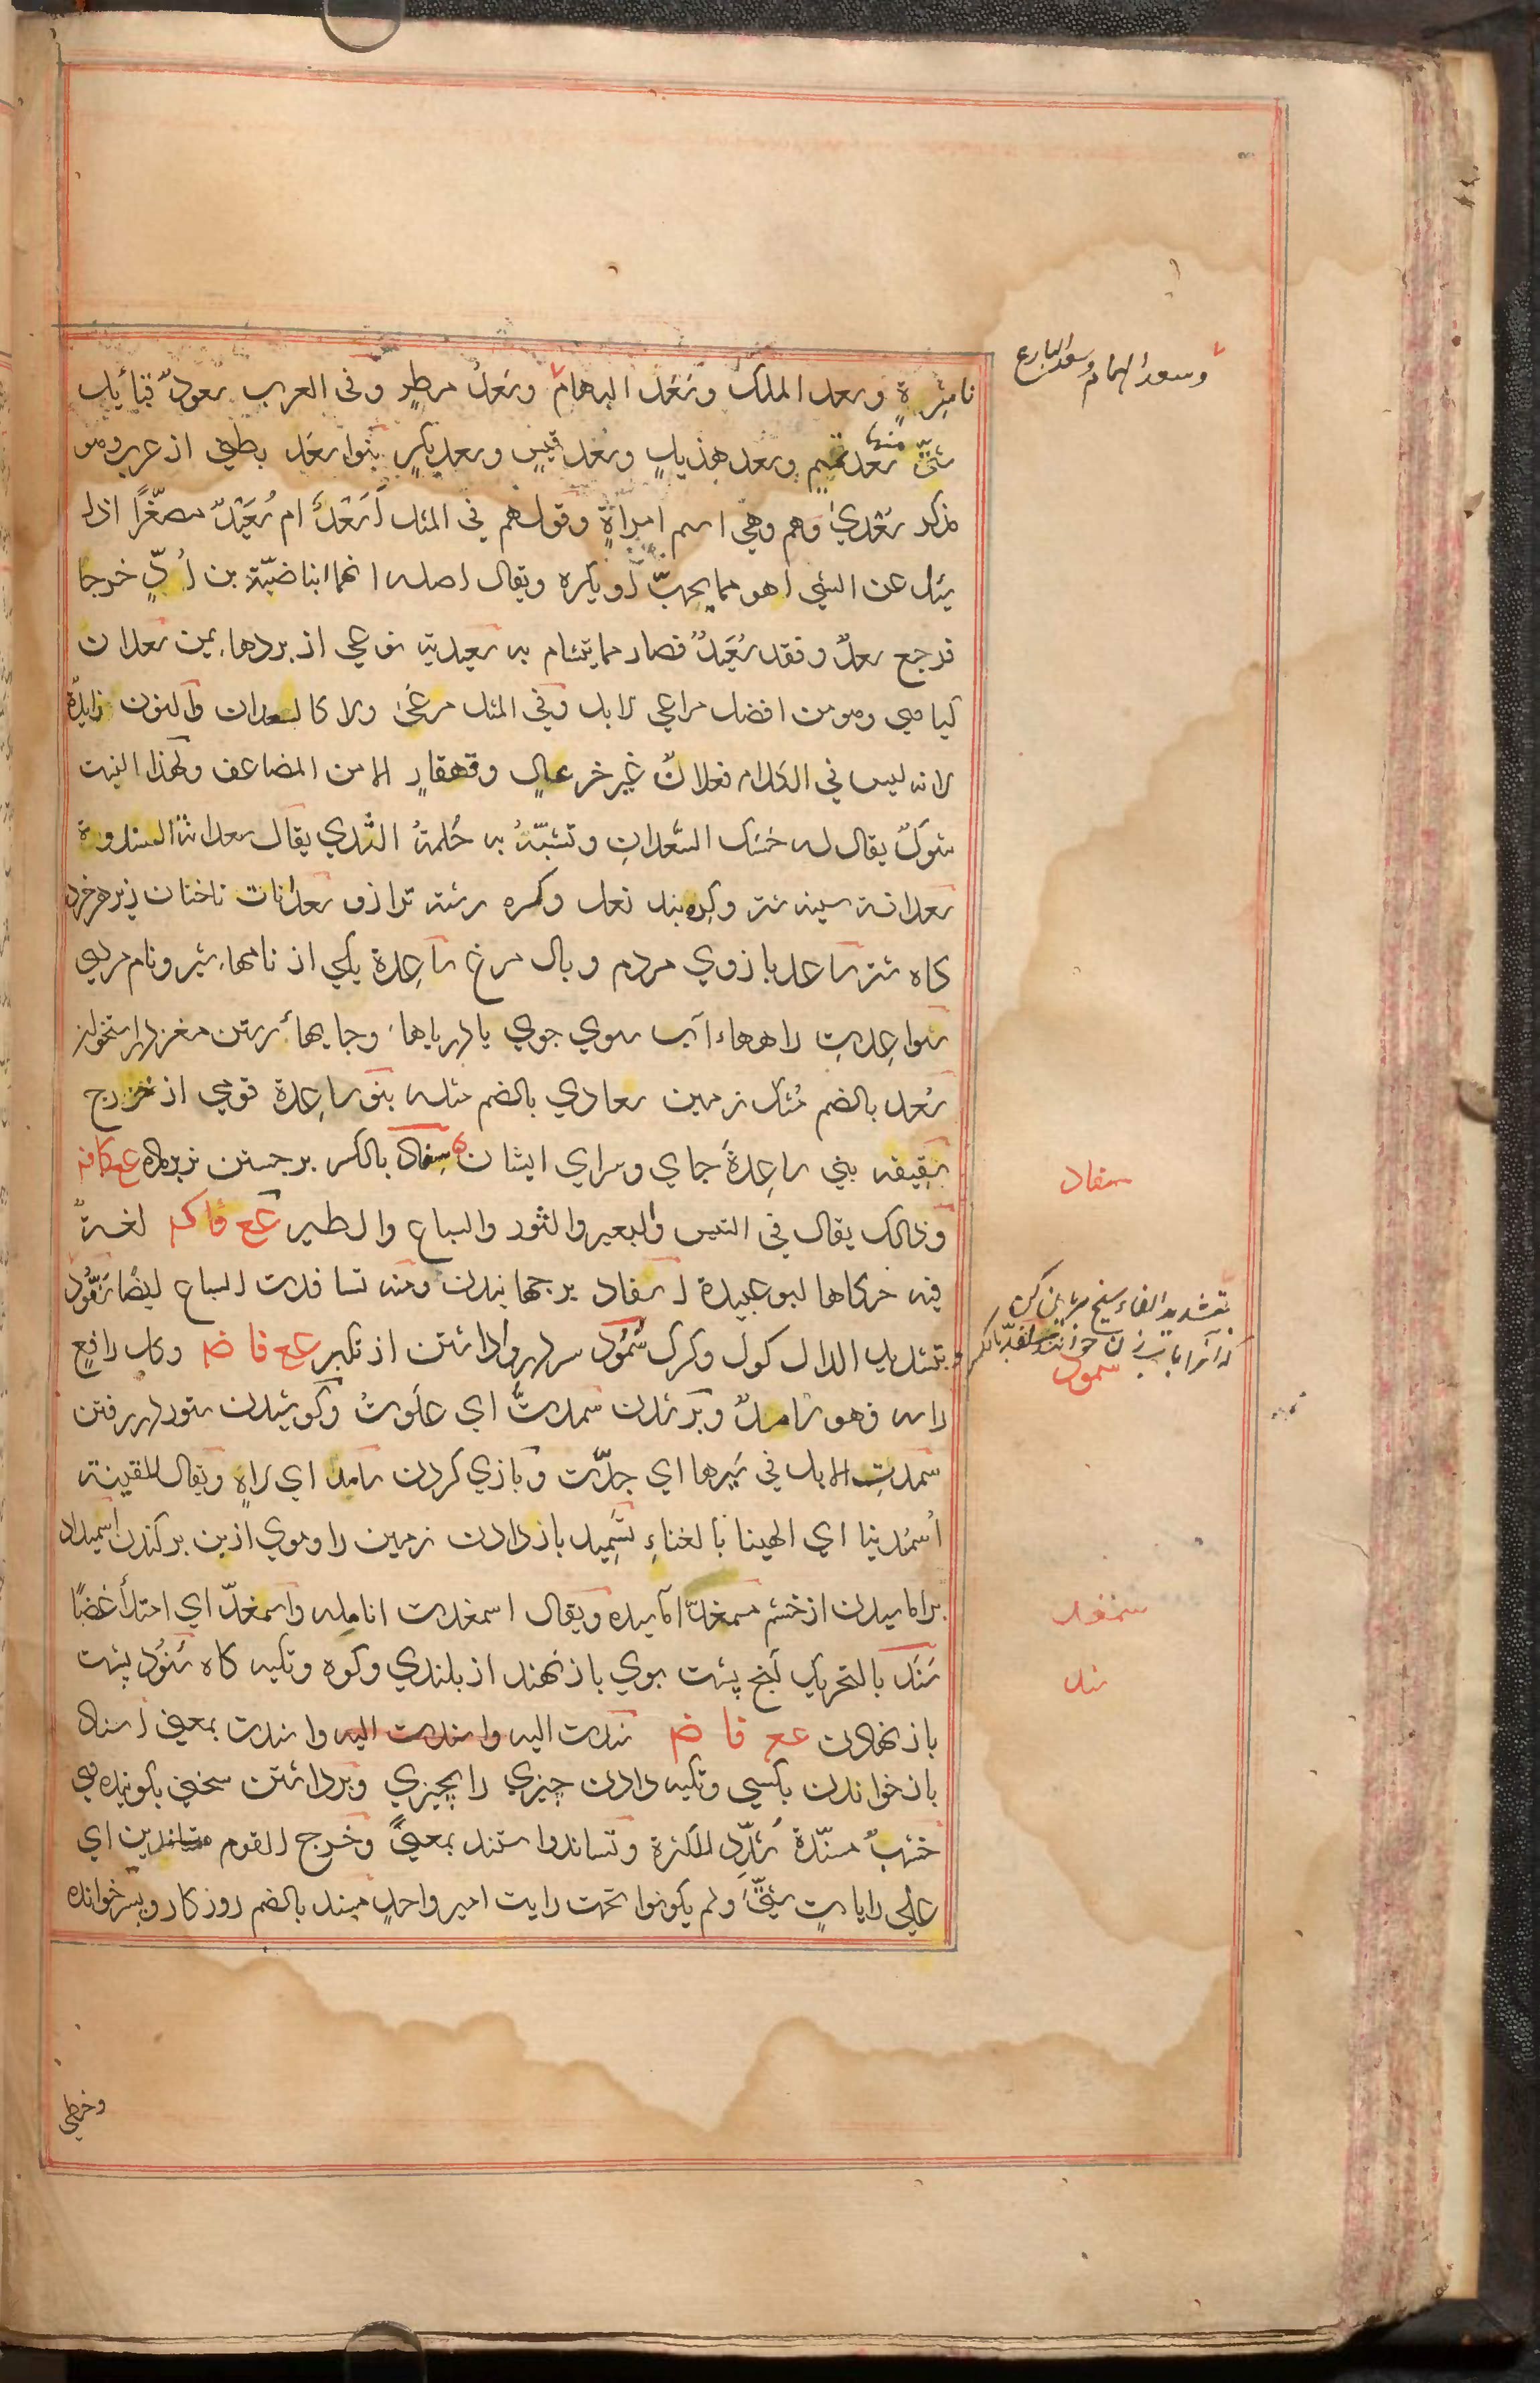 ناشرة وسعد الملك وسعد البهام وسعد مطر وفى العرب سعود قبائل
شتى منها سعد تميم وسعد هذيل وسعد قيس وسعد بكر بنوا سعد بطنى از عرب ومو
مذكر سعدي وهم وهي اسم امراة وقولهم في المثل أسعدٌ ام سُعَيدٌ مصغّراً اذا
سئل عن الشئ اهو مما يحبّ او يكره ويقال اصله انهما ابنا ضبّة بن اُدٍّ خرجا
فرجع سعدٌ وفقد سُعَيدٌ فصار مما يتشام به سعيدية نوعي از بردهاء يمن سعدان
كياهي وهو من افضل مراعي الابل وفي المثل مرعى ولا كالسعدان والنون زايدة
لانه ليس في الكلام فعلان غير خزعال وقهقار الا من المضاعف ولهذا النبت
شوكٌ يقال له خسك السعدان وتشبّه به حُلمةُ الثدي يقال سعدانة الثندوة
سعدانة سينه شتر وكره بند نعل وكره رشته ترازو سعدانات ناخنان زير هر خرد
كاه شتر ساعد بازوي مردم وبال مرغ ساعِدة يكي از نامهاء شير ونام مردى
سواعِد راهها آب سوي جوي يا درياها وجايهاء رستن مغز در استخوان
سُعد بالضم مُشك زمين سعادي بالضم مثله بنو ساعِدة قومي از خزرج
سَقِيفه بني ساعِدة جاي وسراي ايشان سِفاد بالكسر برجستن نر بر ماده عع كافه
وذلك يقال في التيس والبعير والثور والسباع والطير عع فاكه لغةٌ
فيه حكاها ابو عبيدة اسفاد برجهانيدن ومنه تسافدت السباع ايضا سَفُّود
بتشديد الدال كول وكرك سُمُود سر بر داشتن از تكبر عع فاضه وكل رافعٍ
راسه فهو سامدٌ وبر شدن سمدتُ اي علوتُ وكوشيدن ستور در رفتن
سمدتِ الابل في سَيرها اي جدّت وبازي كردن سامد اي لاهٍ ويقال للقينة
اُسمُدينا اي الهينا بالغناءِ تَسمِيد باز دادن زمين را وموي از بن بركندن اسميداد
براماسيدن از خشم مسمغدّ اماسيده ويقال اسمغدت انامله واسمغدّ اي امتلأ غضبًا
سَنَد بالتحريك انج پشت بوي باز نهند از بلندي وكوه وتكيه كاه سُنُود پشت
باز نهادن عع فاضه سندت اليه واسندت اليه واسندت بمعنى اسناد
باز خواندن بكسي وتكيه دادن چيزي را بچيزي وبرداشتن سخن بكوينده وي
خشبٌ مسنّدة شدّد للكثرة وتساندوا ستند بمعنىً وخرج القوم متساندين اي
على راياتٍ شتّى ولم يكونوا تحت رايت امير واحدٍ مسند بالضم روز كار وپسر خوانده
وسعد الهمام وسعد البارع
سفاد
بتشديد الفاء سيخ بريان كن
كه آنرا باب زن خوانند
سمود
سمغد
سند
وخطى